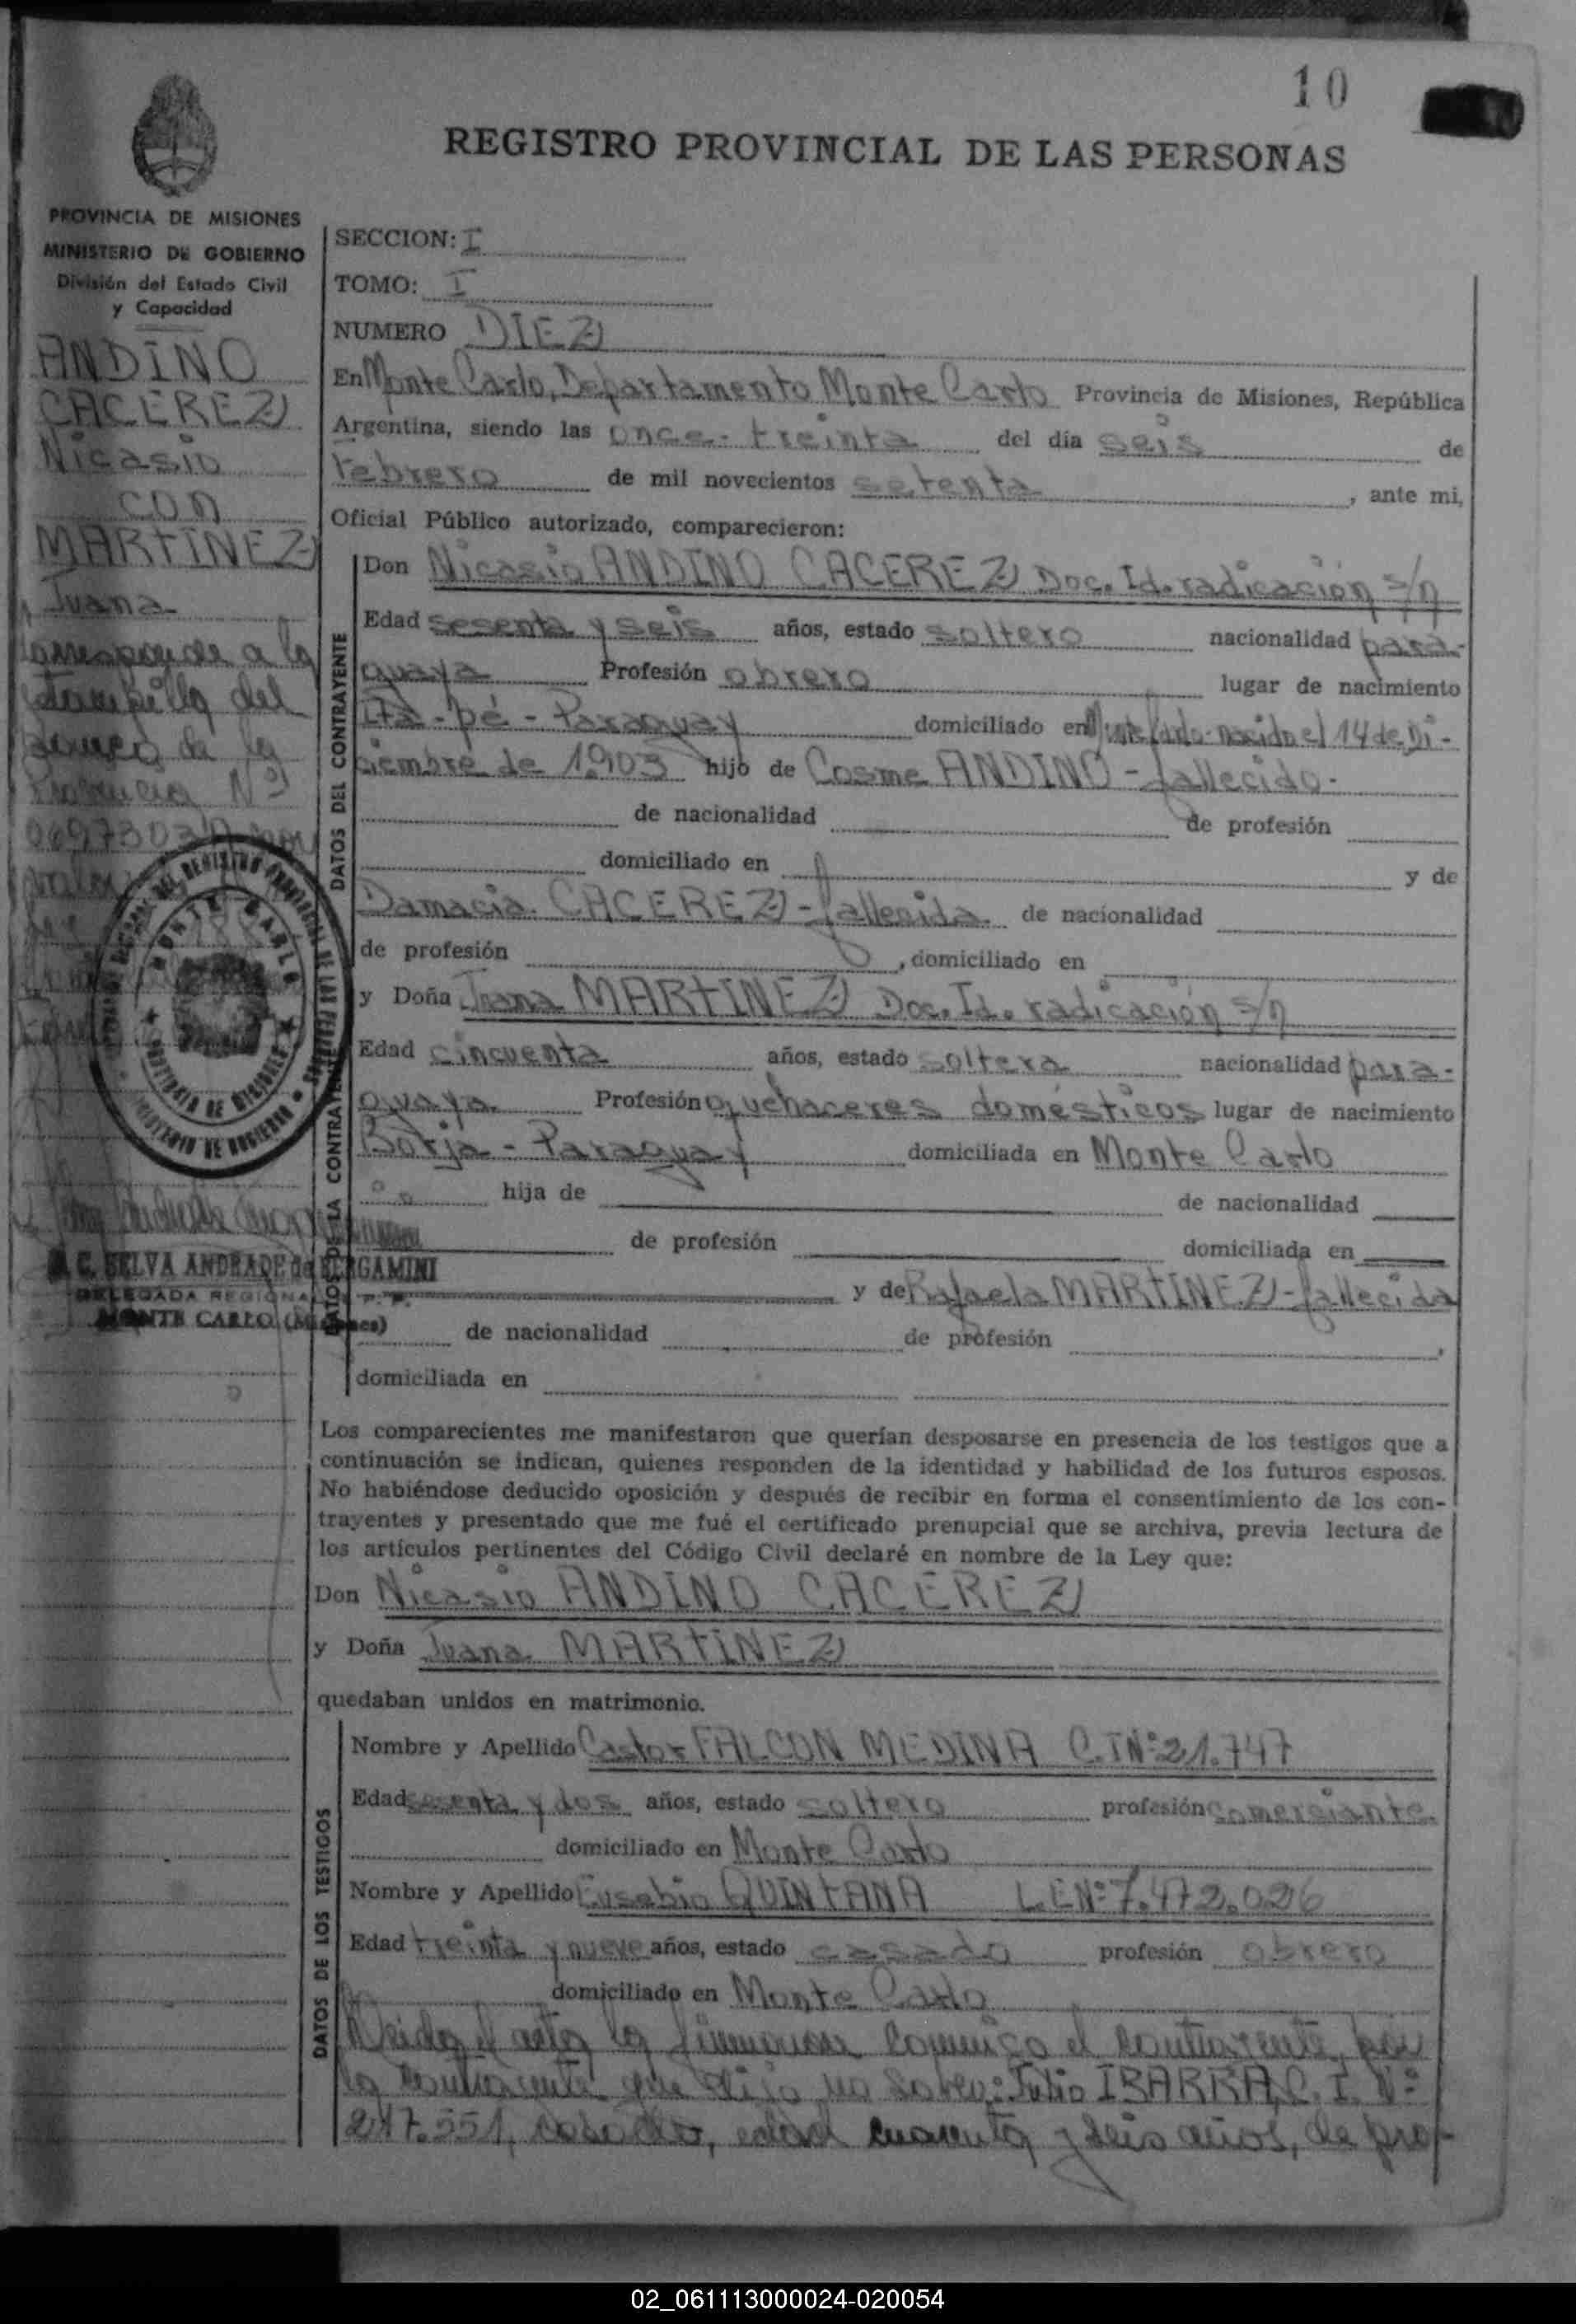 10
REGISTRO PROVINCIAL DE LAS PERSONAS
PROVINCIA DE MISIONES
MINISTERIO DE GOBIERNO
División del Estado Civil
y Capacidad
ANDINO
CACEREZ
Nicasio
CON
MARTINEZ
Juana
Corresponde a la
estampilla del
de la
Provincia Nº
valor
MONTE CARLO
PROVINCIA DE MISIONES
MINISTERIO DE GOBIERNO
SELVA ANDRADE de BERGAMINI
DELEGADA REGIONAL
MONTE CARLO (Misiones)
SECCION: I
TOMO: I
NUMERO DIEZ
En Monte Carlo, Departamento Monte Carlo Provincia de Misiones, República
Argentina, siendo las once-treinta del día seis de
Febrero de mil novecientos setenta, ante mi,
Oficial Público autorizado, comparecieron:
DATOS DEL CONTRAYENTE
Don Nicasio ANDINO CACEREZ Doc. Id. radicación s/n
Edad sesenta y seis años, estado soltero nacionalidad para-
guaya Profesión obrero lugar de nacimiento
Ita-pé-Paraguay domiciliado en Monte Carlo-nacido el 14 de Di-
ciembre de 1903 hijo de Cosme ANDINO-fallecido-
de nacionalidad de profesión
domiciliado en y de
Damacia CACEREZ-fallecida de nacionalidad
de profesión , domiciliado en
DATOS DE LA CONTRAYENTE
y Doña Juana MARTINEZ Doc. Id. radicación s/n
Edad cincuenta años, estado soltera nacionalidad para-
guaya Profesión quehaceres domésticos lugar de nacimiento
Borja-Paraguay domiciliada en Monte Carlo
hija de de nacionalidad
de profesión domiciliada en
y de Rafaela MARTINEZ-fallecida
de nacionalidad de profesión ,
domiciliada en
Los comparecientes me manifestaron que querían desposarse en presencia de los testigos que a
continuación se indican, quienes responden de la identidad y habilidad de los futuros esposos.
No habiéndose deducido oposición y después de recibir en forma el consentimiento de los con-
trayentes y presentado que me fué el certificado prenupcial que se archiva, previa lectura de
los artículos pertinentes del Código Civil declaré en nombre de la Ley que:
Don Nicasio ANDINO CACEREZ
y Doña Juana MARTINEZ
quedaban unidos en matrimonio.
DATOS DE LOS TESTIGOS
Nombre y Apellido Castor FALCON MEDINA C.I Nº 21.747
Edad sesenta y dos años, estado soltero profesión comerciante
domiciliado en Monte Carlo
Nombre y Apellido Eusebio QUINTANA L.E Nº 7.472.026
Edad treinta y nueve años, estado casado profesión obrero
domiciliado en Monte Carlo
Leida el acta la firmaron conmigo el contrayente, por
la contrayente que dijo no saber: Julio IBARRA, C. I. Nº
247.551, casado, edad cuarenta y seis años, de prof-
02_061113000024-020054